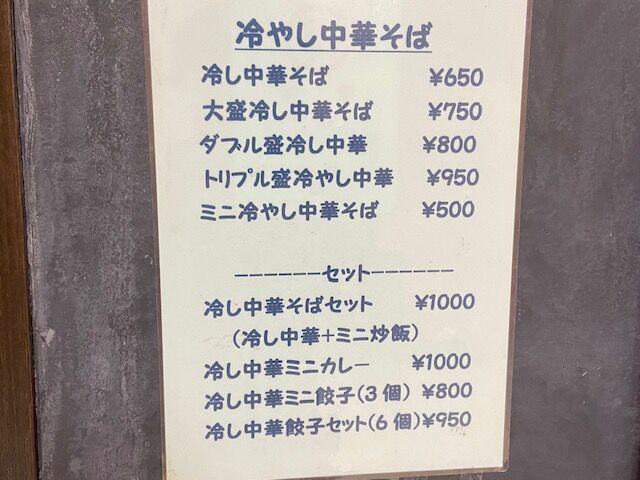 冷やし中華そば
冷し中華そば ¥650
大盛冷し中華そば ¥750
ダブル盛冷し中華 ¥800
トリプル盛冷やし中華 ¥950
ミニ冷やし中華そば ¥500
------セット------
冷し中華そばセット ¥1000
(冷し中華+ミニ炒飯)
冷し中華ミニカレー ¥1000
冷し中華ミニ餃子(3個) ¥800
冷し中華餃子セット(6個)¥950